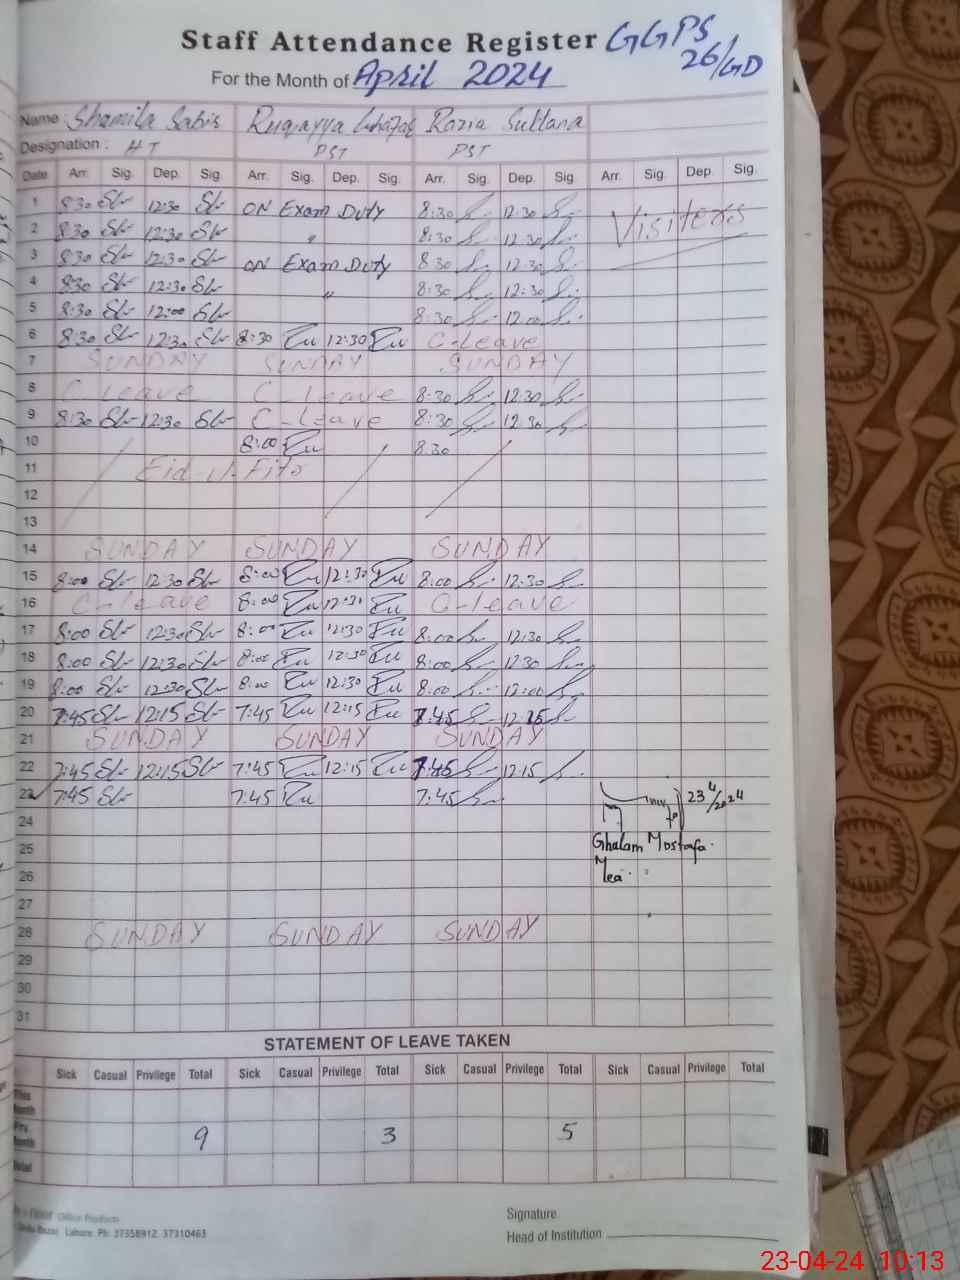 Staff Attendance Register GGPS
26/GD
For the Month of April 2024
Name Shamila Sabir Ruqayya Ghafar Razia Sultana
Designation : HT PST PST
Date Arr. Sig. Dep. Sig. Arr. Sig. Dep. Sig. Arr. Sig. Dep. Sig. Arr. Sig. Dep. Sig.
1 8:30 12:30 ON Exam Duty 8:30 12:30 Visiters
2 8:30 12:30 " 8:30 12:30
3 8:30 12:30 ON Exam Duty 8:30 12:30
4 8:30 12:30 " 8:30 12:30
5 8:30 12:00 8:30 12:00
6 8:30 12:30 8:30 12:30 C-Leave
7 SUNDAY SUNDAY SUNDAY
8 C Leave C-Leave 8:30 12:30
9 8:30 12:30 C-Leave 8:30 12:30
10 8:00 8:30
11 Eid-ul-Fitr
12
13
14 SUNDAY SUNDAY SUNDAY
15 8:00 12:30 8:00 12:30 8:00 12:30
16 C-Leave 8:00 12:30 C-Leave
17 8:00 12:30 8:00 12:30 8:00 12:30
18 8:00 12:30 8:00 12:30 8:00 12:30
19 8:00 12:30 8:00 12:30 8:00 12:00
20 7:45 12:15 7:45 12:15 7:45 12:15
21 SUNDAY SUNDAY SUNDAY
22 7:45 12:15 7:45 12:15 7:45 12:15
23 7:45 7:45 7:45 23/4/2024
24
25 Ghalam Mostafa.
26 Mea
27
28 SUNDAY SUNDAY SUNDAY
29
30
31
STATEMENT OF LEAVE TAKEN
Sick Casual Privilege Total Sick Casual Privilege Total Sick Casual Privilege Total Sick Casual Privilege Total
This Month
Prv. Month 9 3 5
Total
Office Products
Bazar Lahore. Ph: 37358912 37310463
Signature
Head of Institution
23-04-24 10:13